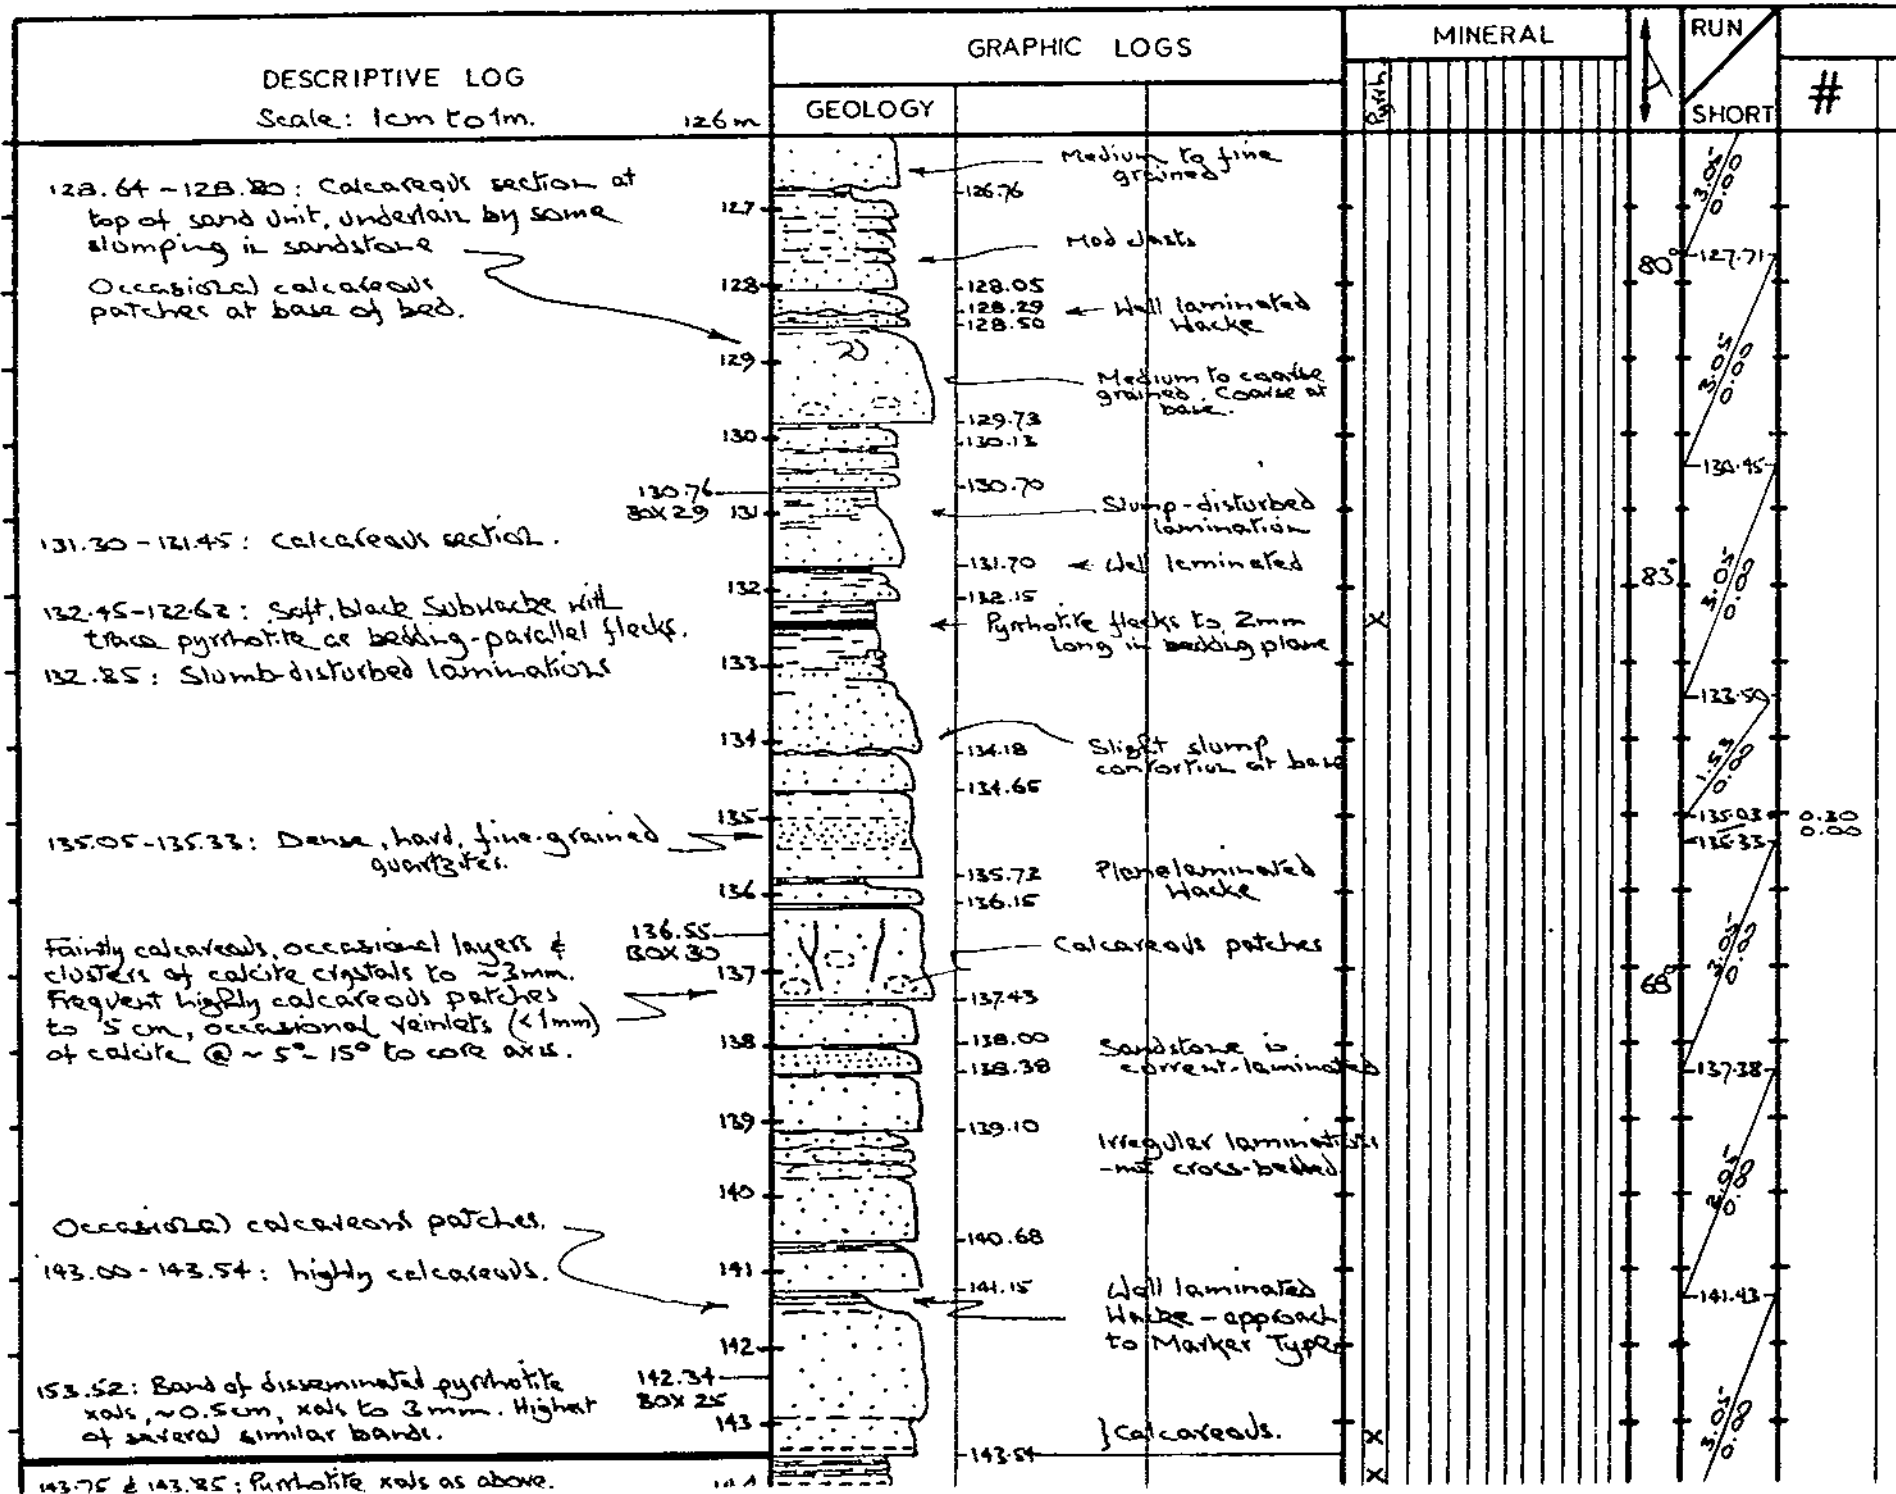 DESCRIPTIVE LOG
Scale: 1cm to 1m.
126m
GRAPHIC LOGS
GEOLOGY
MINERAL
Pyrrh.
RUN
SHORT
#
128.64 - 128.80: Calcareous section at
top of sand unit, underlain by some
slumping in sandstone
Occasional calcareous
patches at base of bed.
131.30 - 131.45: Calcareous section.
132.45-132.62: Soft, black Subwacke with
trace pyrrhotite as bedding-parallel flecks.
132.85: Slumb-disturbed laminations
135.05-135.33: Dense, hard, fine-grained
quartzites.
Faintly calcareous, occasional layers &
clusters of calcite crystals to ~3mm.
Frequent highly calcareous patches
to 5cm, occasional veinlets (<1mm)
of calcite @ ~ 5°- 15° to core axis.
Occasional calcareous patches.
143.00 - 143.54: highly calcareous.
153.52: Band of disseminated pyrrhotite
xals, ~0.5cm, xals to 3mm. Highest
of several similar bands.
143.75 & 143.85: Pyrrhotite xals as above.
127
128
129
130
130.76
BOX 29
131
132
133
134
135
136
136.55
BOX 30
137
138
139
140
141
142
142.34
BOX 25
143
144
126.76
128.05
128.29
128.50
129.73
130.13
130.70
131.70
132.15
134.18
134.65
135.72
136.15
137.43
138.00
138.38
139.10
140.68
141.15
143.54
Medium to fine
grained
Mud clasts
Well laminated
Wacke
Medium to coarse
grained. Coarse at
base.
Slump-disturbed
lamination
Well laminated
Pyrrhotite flecks to 2mm
long in bedding plane
Slight slump
contortion at base
Plane laminated
Wacke
Calcareous patches
Sandstone is
current-laminated
Irregular laminations
-not cross-bedded
Well laminated
Wacke - approach
to Marker Type
}Calcareous.
X
X
X
80°
83°
68°
3.05
0.00
127.71
3.05
0.00
130.45
3.05
0.00
133.50
1.53
0.00
135.03
0.30
0.00
135.33
0.00
137.38
0.00
141.43
3.05
0.00